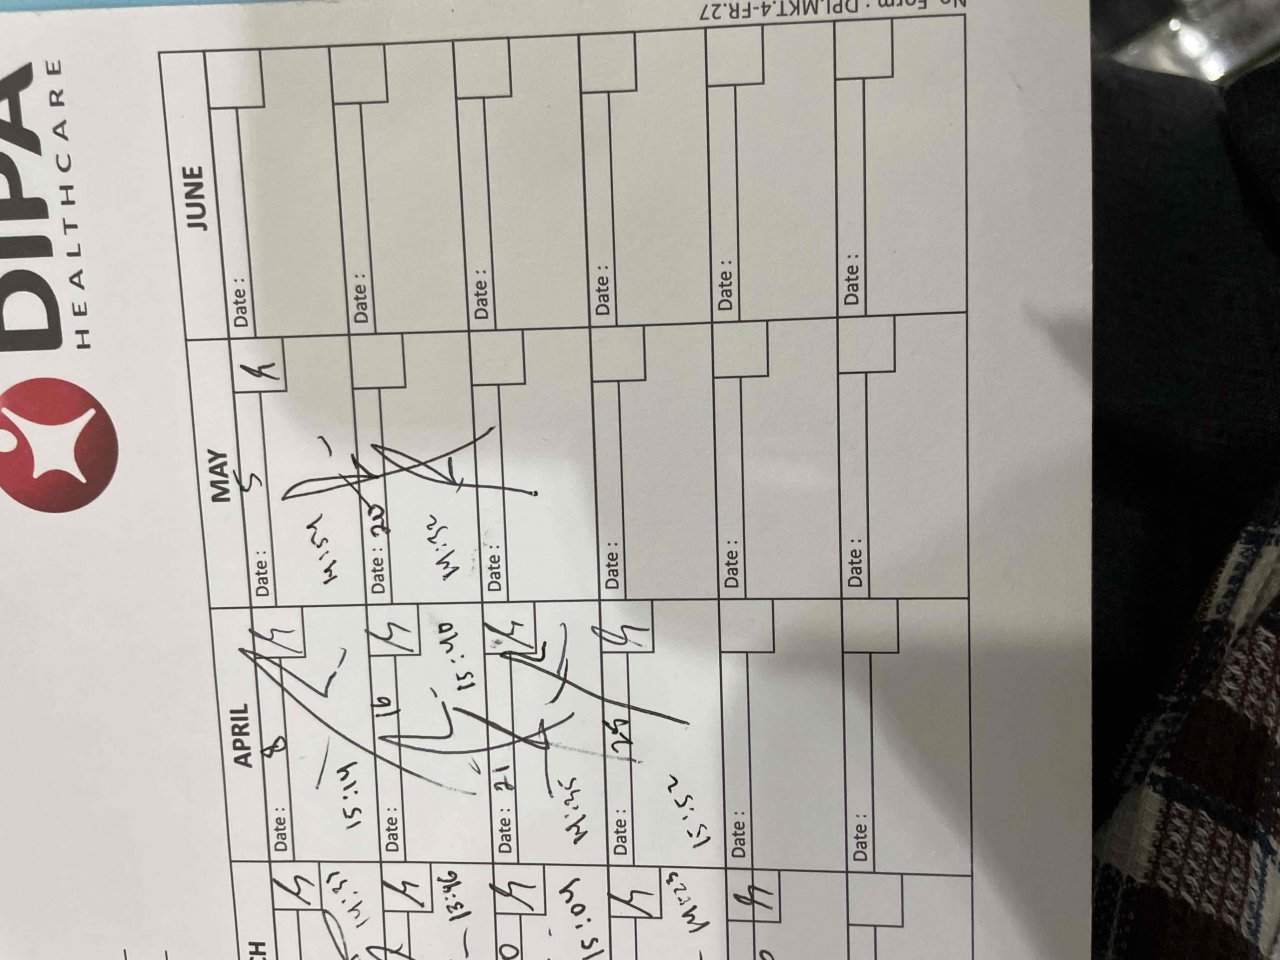 DIPA
HEALTHCARE
No. Form : DPI.MKT.4-FR.27
APRIL MAY JUNE
Date : 8
15:14
Date : 5
14:54
Date :
Date : 16
15:40
Date : 20
14:52
Date :
Date : 21
14:45
Date :
Date :
Date : 25
15:52
Date :
Date :
Date :
Date :
Date :
Date :
Date :
Date :
CH
14:37
13:46
15:04
14:23